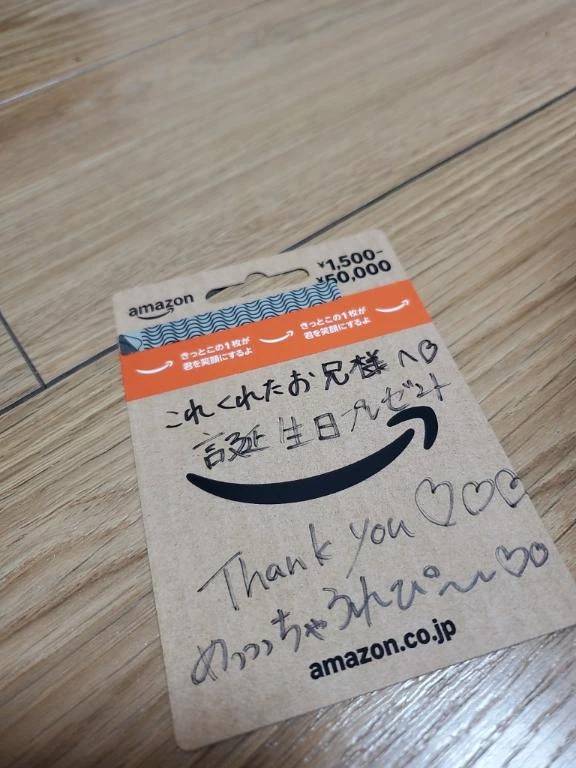 amazon
¥1,500-
¥50,000
きっとこの1枚が
君を笑顔にするよ
きっとこの1枚が
君を笑顔にするよ
これくれたお兄様へ♡
誕生日プレゼント
Thank you♡♡♡
めっっっちゃうれぴ〜〜♡♡
amazon.co.jp